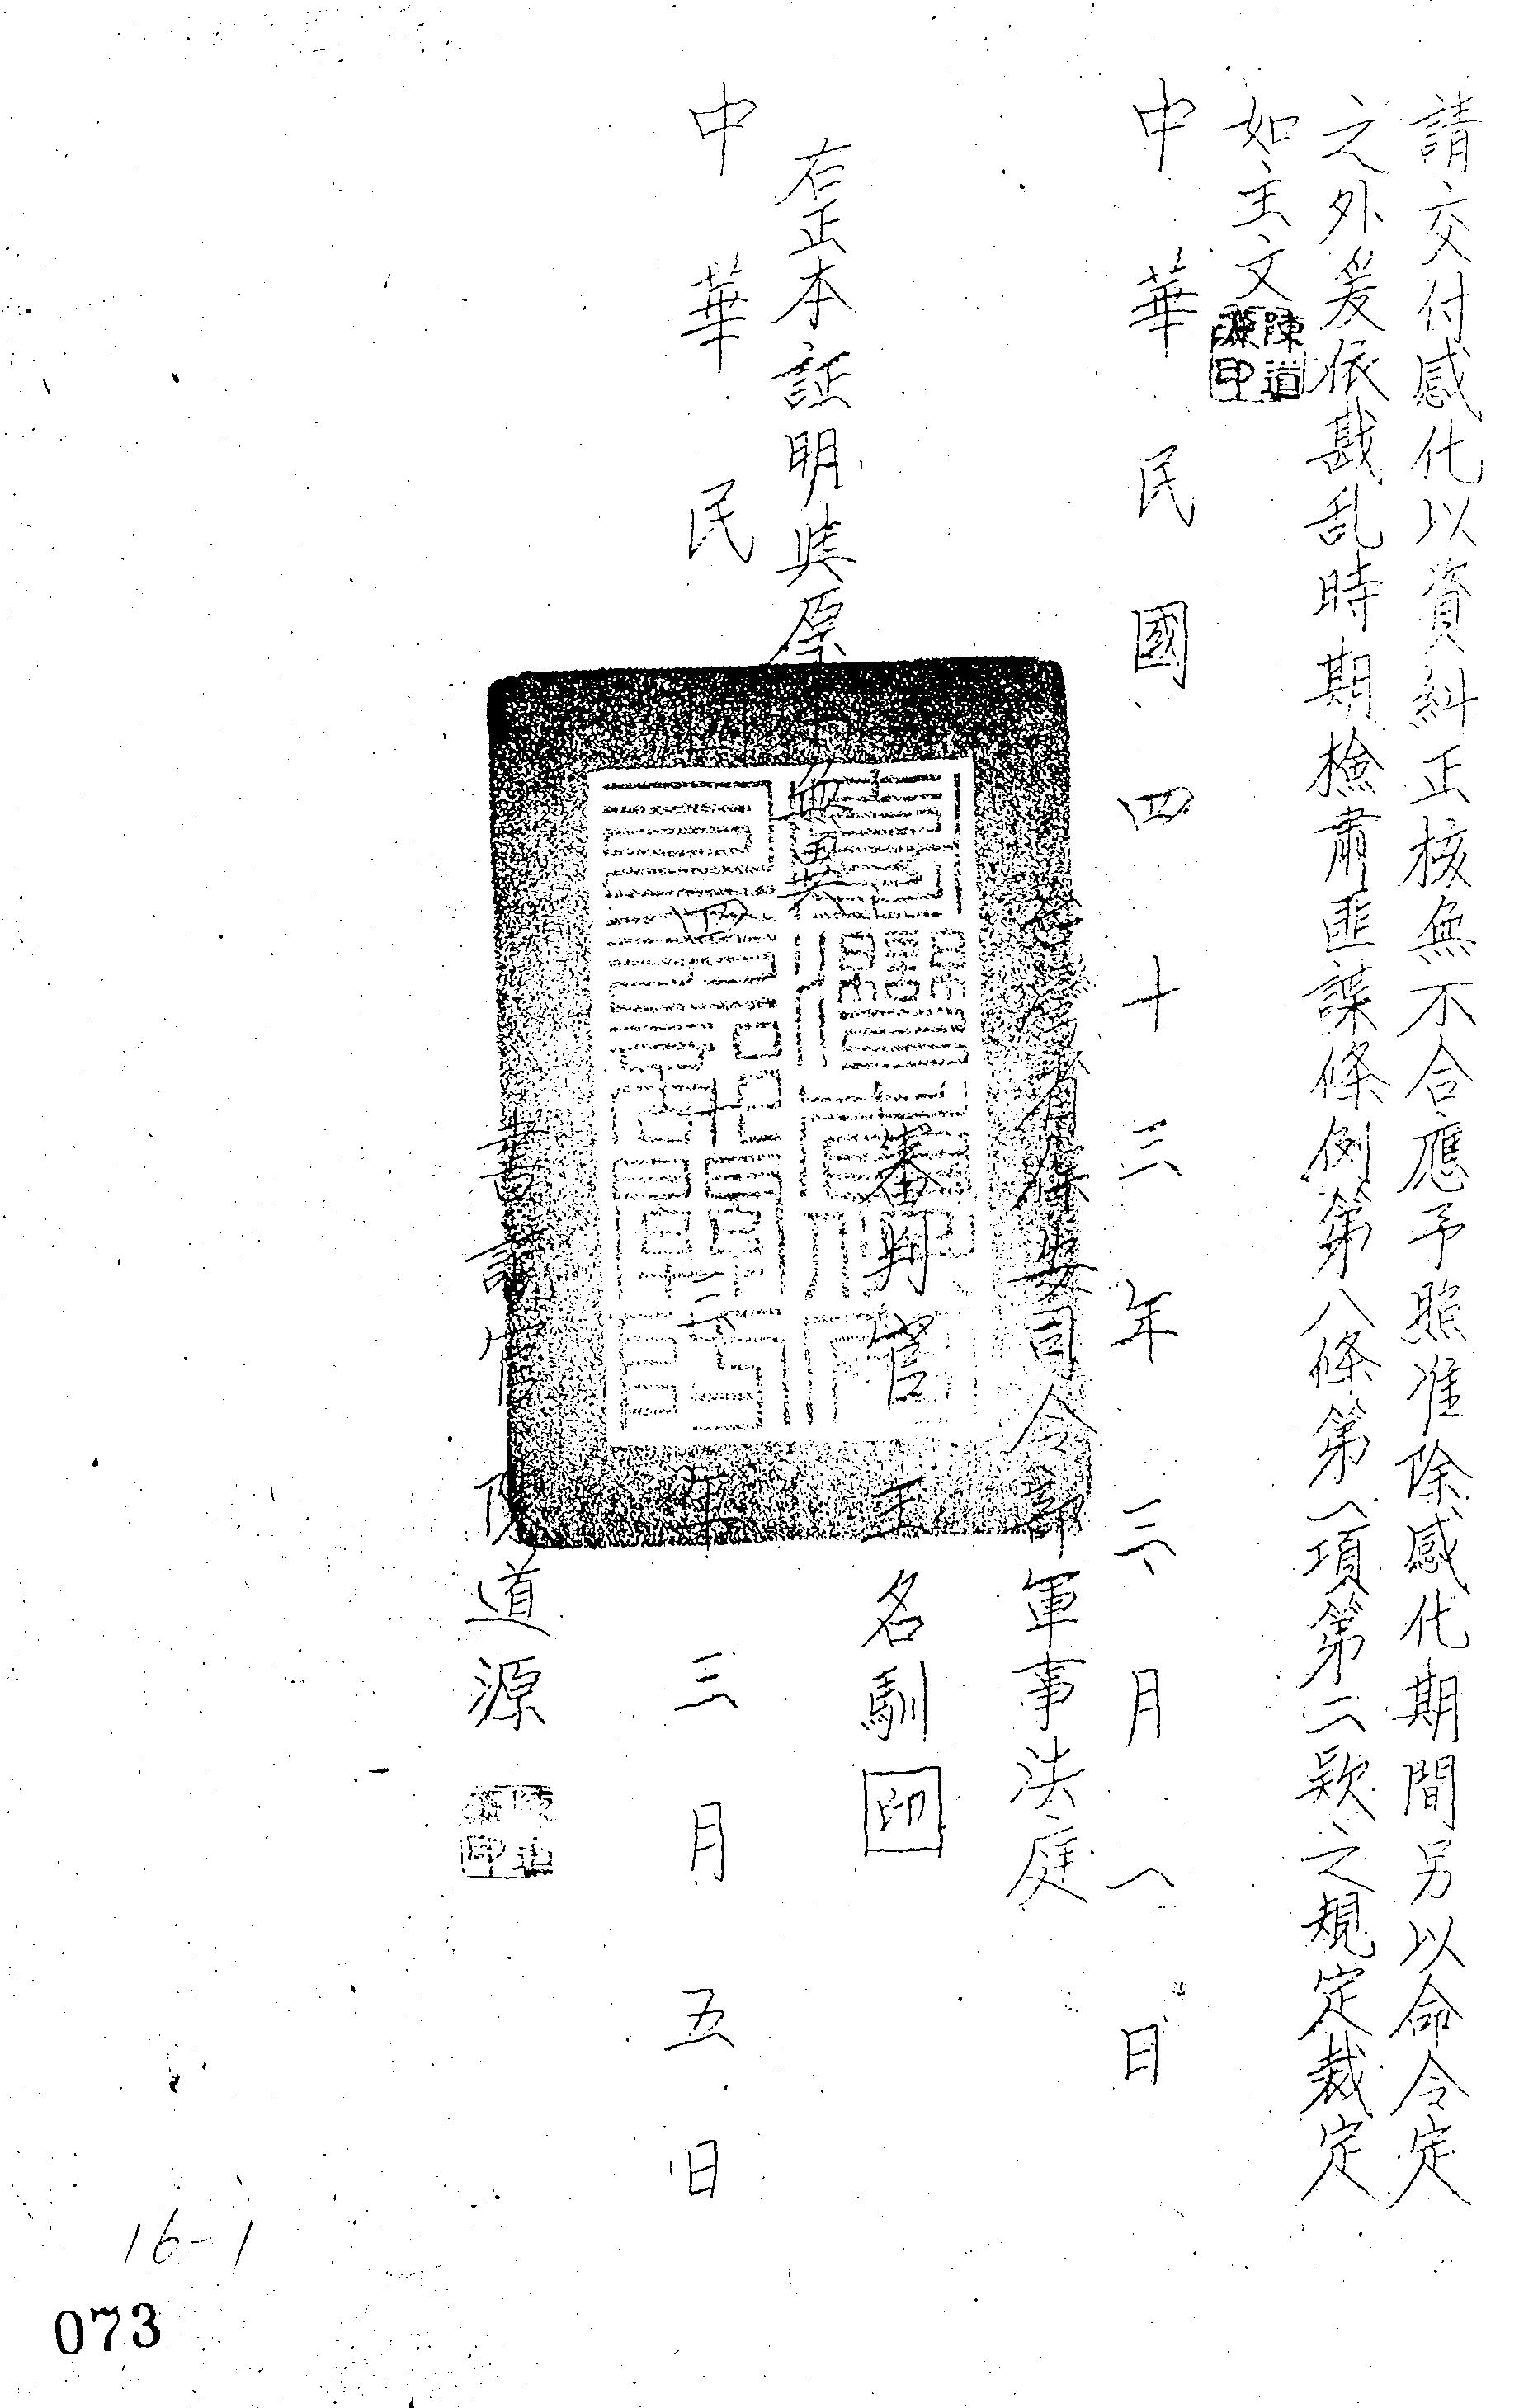 請交付感化以資糾正核無不合應予照准除感化期間另以命令定
之外爰依戡乱時期檢肅匪諜條例第八條第一項第二款之規定裁定
如主文
陳道源印
中華民國四十三年三月一日
臺灣省保安司令部軍事法庭
審判官王名馴印
右正本証明與原本無異
中華民國四十三年三月五日
書記官陳道源
陳道源印
16-1
073